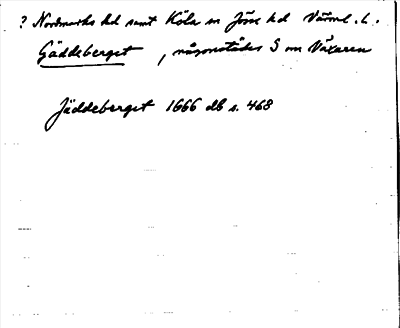 ? Nordmarks hd samt Köla sn Jösse hd Värml. l.
Gäddeberget , någonstädes S om Växaren
Jäddeberget 1666 db s. 468